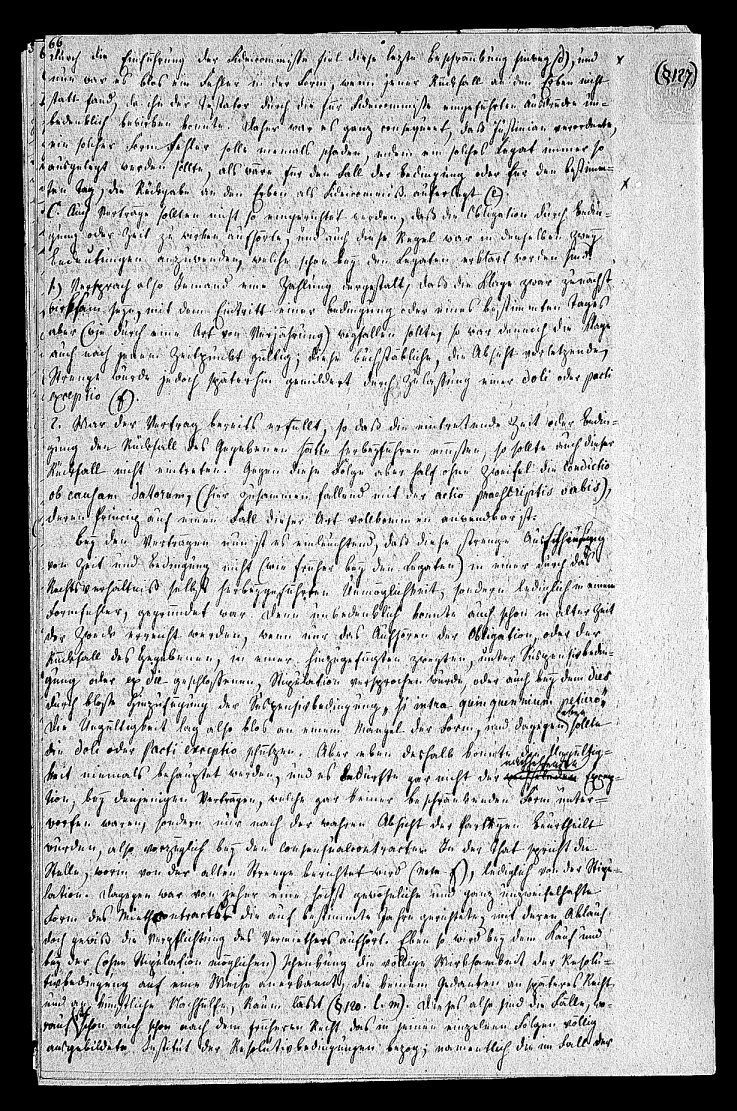 66
durch die Einführung der Fideicommisse fiel diese letzte Beschränkung hinweg, und
nun war es blos ein Fehler in der Form, wenn jener Rückfall an den Erben nicht
(§127)
statt fand, da ihn der Testator durch die für Fideicommisse eingeführten Ausdrücke un-
bedenklich bewirken konnte. Daher war es ganz consequent, daß Justinian verordnete,
ein solcher Form Fehler solle niemals schaden, indem ein solches Legat immer so
ausgelegt werden sollte, als wäre für den Fall der Bedingung oder für den bestimm-
ten Tag, die Rückgabe an den Erben als Fideicommiß auferlegt (e)
C. Auch Verträge sollten nicht so eingerichtet werden, daß die Obligation durch Bedin-
gung oder Zeit zu wirken aufhörte, und auch diese Regel war in denselben zwey
Bedeutungen anzuwenden, welche schon bey den Legaten erklärt worden sind.
1) Versprach also Jemand eine Zahlung dergestalt, daß die Klage zwar zunächst
wirksam seyn, mit dem Eintritt einer Bedingung oder eines bestimmten Tages
aber (wie durch eine Art von Verjährung) wegfallen sollte, so war dennoch die Klage
auch nach jenem Zeitpunkt gültig; diese buchstäbliche, die Absicht verletzende,
Strenge wurde jedoch späterhin gemildert durch Zulassung einer doli oder pacti
exceptio (f).
2. War der Vertrag bereits erfüllt, so daß die eintretende Zeit oder Bedin-
gung den Rückfall des Gegebenen hätte herbeyführen müssen, so sollte auch dieser
Rückfall nicht eintreten. Gegen diese Folge aber half ohne Zweifel die Condictio
ob causam datorum, (hier zusammen fallend mit der actio praescriptis verbis),
deren Princip auf einen Fall dieser Art vollkommen anwendbar ist.
Bey den Verträgen nun ist es einleuchtend, daß diese strenge Ausschließung
von Zeit und Bedingung nicht (wie früher bey den Legaten) in einer durch das
Rechtsverhältniß selbst herbeygeführten Unmöglichkeit, sondern lediglich in einem
Formfehler, gegründet war. Denn unbedenklich konnte auch schon in alter Zeit
der Zweck erreicht werden, wenn nur das Aufhören der Obligation, oder der
Rückfall des Gegebenen, in einer hinzugefügten zweyten, unter Suspensivbedin-
gung oder ex die geschlossenen, Stipulation versprochen wurde, oder auch bey dem dies
durch bloße Hinzufügung der Suspensivbedingung, si intra quinquennium petiero,
Die Ungültigkeit lag also blos an einem Mangel der Form, und dagegen sollte
die doli oder pacti exceptio schützen. Aber eben deshalb konnte die Ungültig-
keit niemals behauptet werden, und es bedurfte gar nicht der Excep-
tion, bey denjenigen Verträgen, welche gar keiner beschränkenden Form unter-
worfen waren, sondern nur nach der wahren Absicht der Partheyen beurtheilt
wurden, also vorzüglich bey den Consensualcontracten. In der That spricht die
Stelle, worin von der alten Strenge berichtet wird (Note f), lediglich von der Stipu-
lation. Dagegen war von jeher eine höchst gewöhnliche und ganz unzweifelhafte
Form des Miethcontracts die auf bestimmte Jahre gerichtete, mit deren Ablauf
doch gewiß die Verpflichtung des Vermiethers aufhört. Eben so wird bey dem Kauf und
bey der (ohne Stipulation möglichen) Schenkung die völlige Wirksamkeit der Resolu-
tivbedingung auf eine Weise anerkannt, die keinem Gedanken an späteres Recht
und an künstliche Nachhülfe, Raum läßt (§120. l. m). Dieses also sind die Fälle, wo-
rauf sich auch schon nach dem früheren Recht das in seinen einzelnen Folgen völlig
ausgebildete Institut der Resolutivbedingungen bezog; namentlich die im Fall der